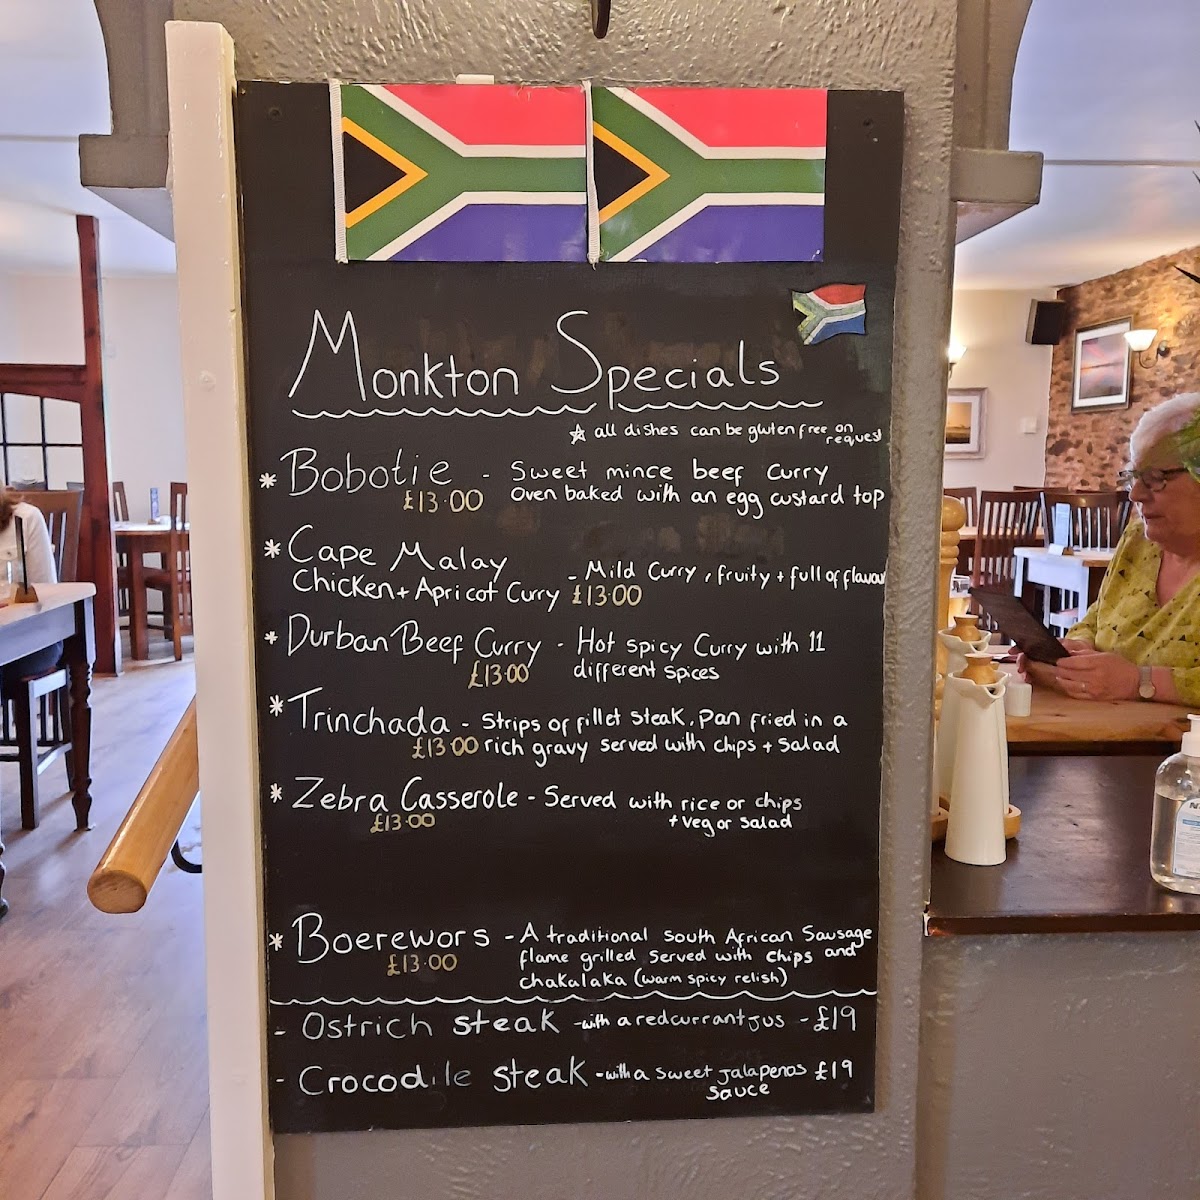 Monkton Specials
☆ all dishes can be gluten free on
request
* Bobotie - Sweet mince beef curry
£13.00 Oven baked with an egg custard top
* Cape Malay
Chicken + Apricot Curry - Mild Curry, fruity + full of flavour
£13.00
* Durban Beef Curry - Hot spicy Curry with 11
£13.00 different spices
* Trinchada - Strips of fillet steak, pan fried in a
£13.00 rich gravy served with chips + Salad
* Zebra Casserole - Served with rice or chips
£13.00 + veg or salad
* Boerewors - A traditional South African Sausage
£13.00 flame grilled served with chips and
chakalaka (warm spicy relish)
- Ostrich steak - with a redcurrant jus - £19
- Crocodile steak - with a sweet jalapenos £19
sauce